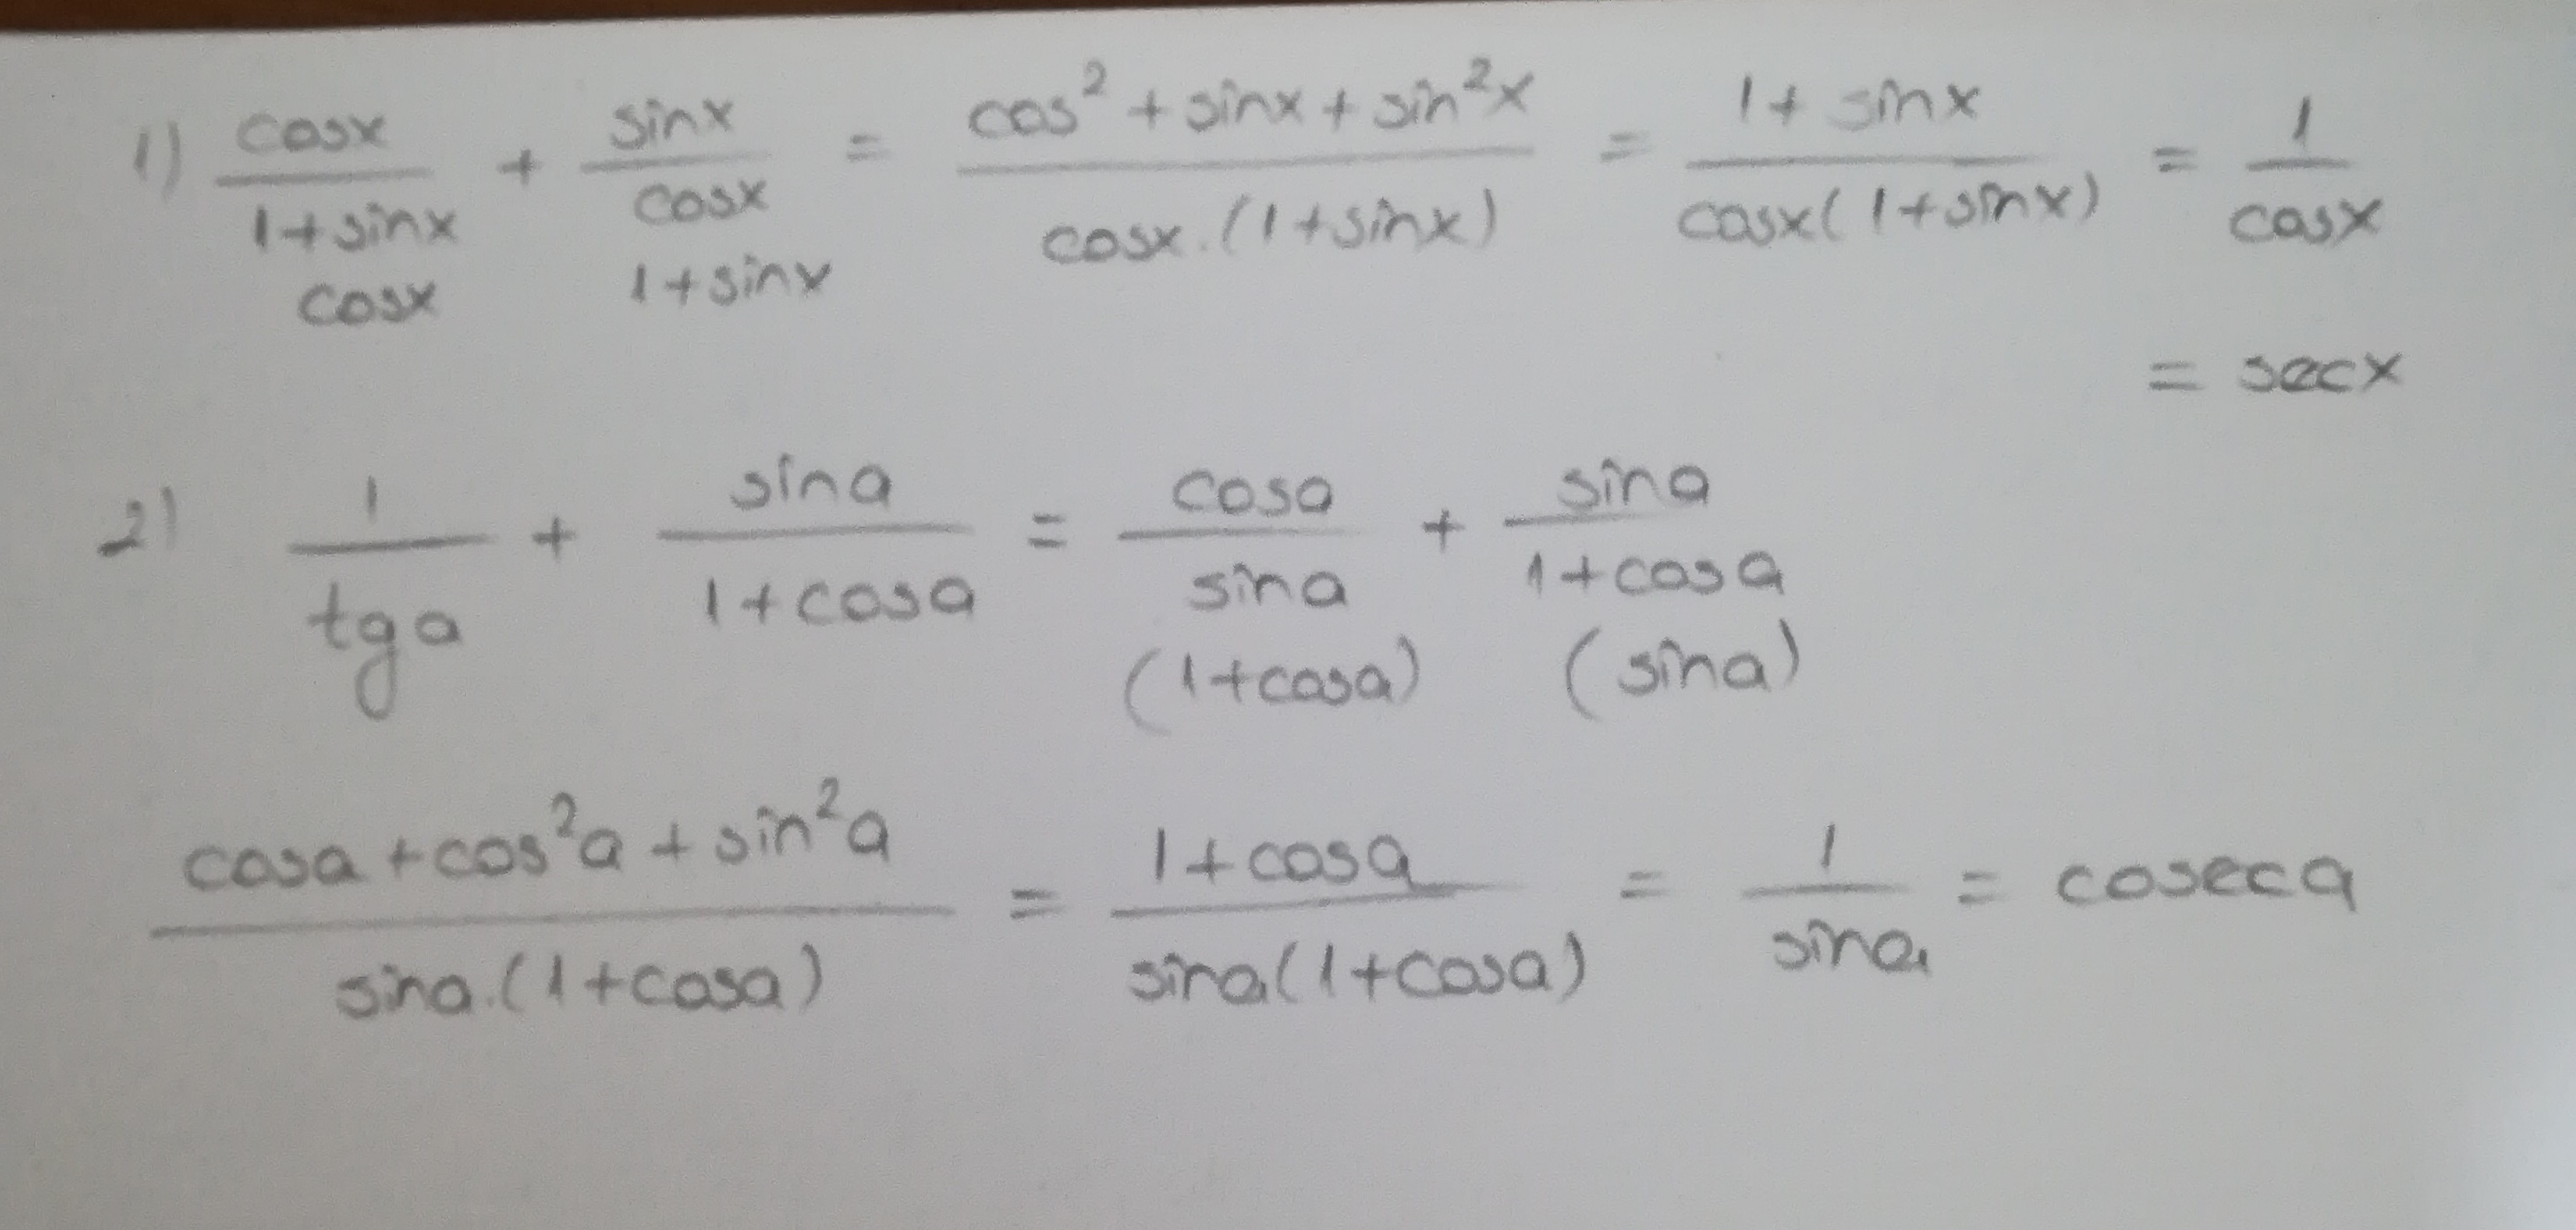 1) cosx/1+sinx + sinx/cosx = cos² + sinx + sin²x/cosx.(1+sinx) = 1+ sinx/cosx(1+sinx) = 1/cosx
cosx 1+sinx
= secx
2) 1/tga + sina/1+cosa = cosa/sina + sina/1+cosa
(1+cosa) (sina)
cosa+cos²a+sin²a/sina.(1+cosa) = 1+cosa/sina(1+cosa) = 1/sina = coseca